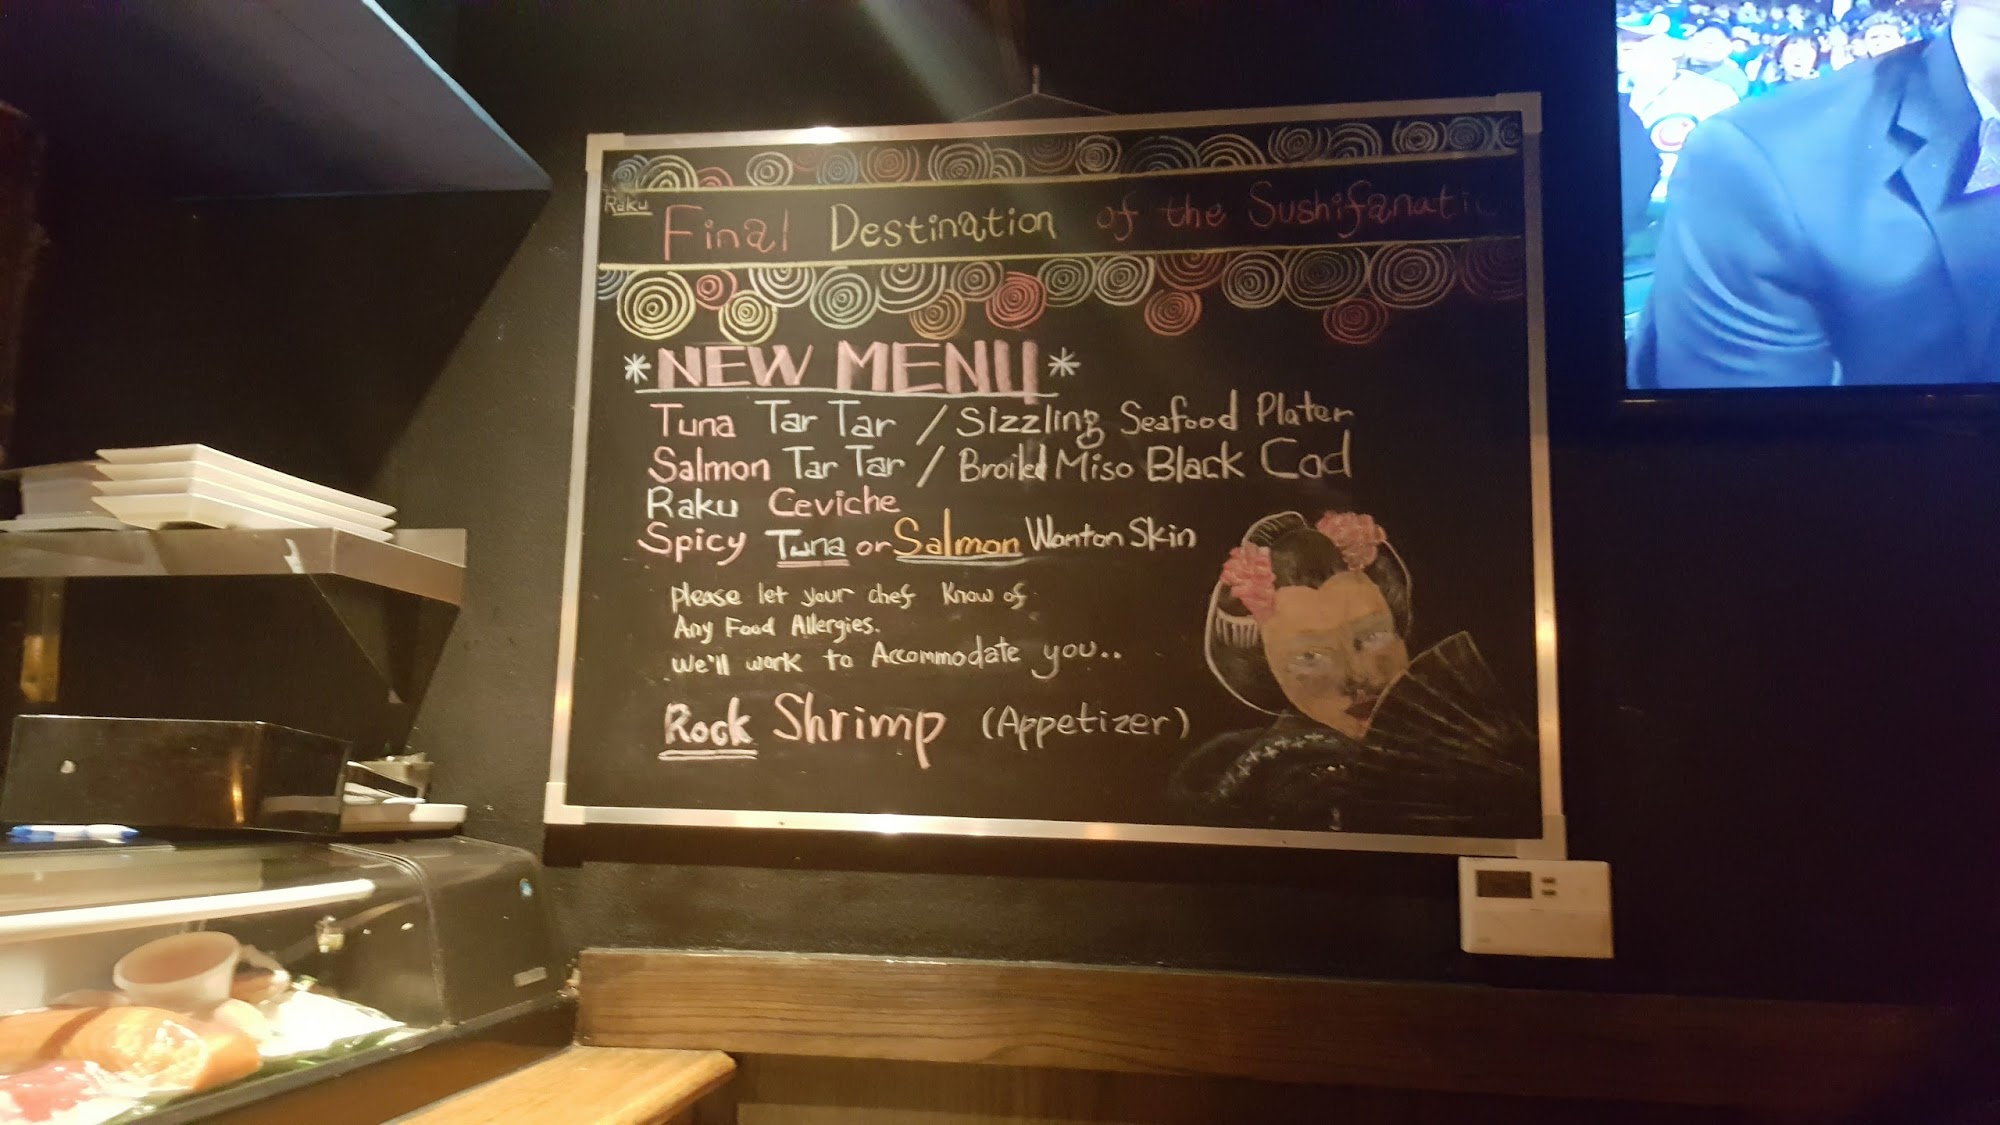 Raku
Final Destination of the Sushifanatic
*NEW MENU*
Tuna Tar Tar / Sizzling Seafood Plater
Salmon Tar Tar / Broiled Miso Black Cod
Raku Ceviche
Spicy Tuna or Salmon Wonton Skin
please let your chef Know of
Any Food Allergies.
we'll work to Accommodate you..
Rock Shrimp (Appetizer)